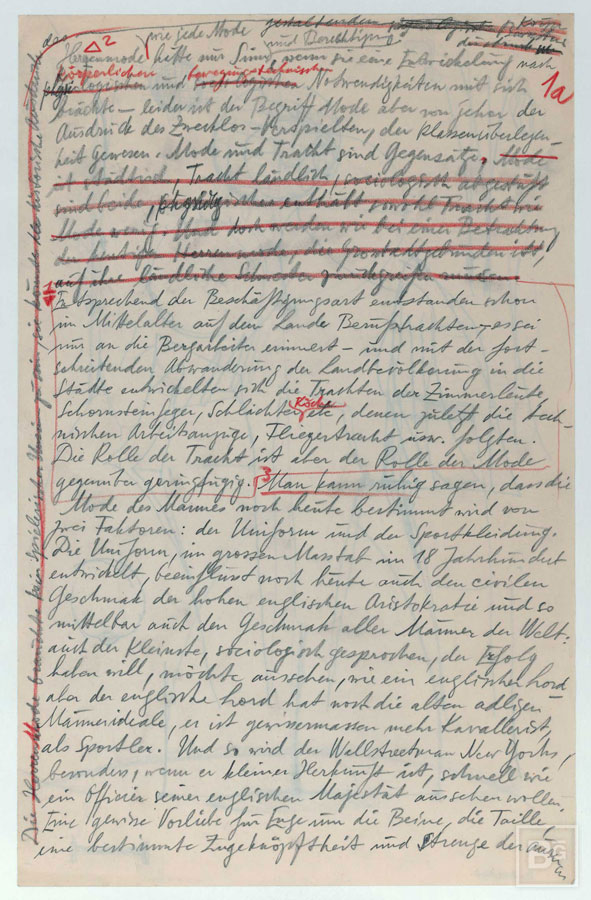 △2 wie jede Mode
und Berechtigung
Herrenmode hätte nur Sinn, wenn sie eine Entwickelung nach
1a
körperlichen bewegungstechnischen
und Notwendigkeiten mit sich
brächte – leider ist der Begriff Mode aber von jeher der
Ausdruck des Zwecklos-Verspielten, der Klassenüberlegen-
heit gewesen. Mode und Tracht sind Gegensätze. Mode
ist städtisch, Tracht ländlich, sociologisch abgestuft
sind beide, enthält sowohl Tracht wie
Mode wenig. Und doch werden wir bei einer Betrachtung
der heutigen Herrenmode, die Grosstadtgebunden ist,
auf ihre ländliche Schwester zurückgreifen müssen.
1
Entsprechend der Beschäftigungsart entstanden schon
im Mittelalter auf dem Lande Berufstrachten – es sei
nur an die Bergarbeiter erinnert – und mit der fort-
schreitenden Abwanderung der Landbevölkerung in die
Städte entwickelten sich die Trachten der Zimmerleute,
Köche
Schornsteinfeger, Schlächter, etc, denen zuletzt die tech-
nischen Arbeitsanzüge, Fliegertracht usw. folgten.
Die Rolle der Tracht ist aber der Rolle der Mode
gegenüber geringfügig. 3 Man kann ruhig sagen, dass die
Mode des Mannes noch heute bestimmt wird von
zwei Faktoren: der Uniform und der Sportkleidung.
Die Uniform, im grossen Masstab im 18 Jahrhundert
entwickelt, beeinflusst noch heute auch den civilen
Geschmack der hohen englischen Aristokratie und so
mittelbar auch den Geschmak aller Männer der Welt:
auch der Kleinste, sociologisch gesprochen, der Erfolg
haben will, möchte aussehen, wie ein englischer Lord
aber der englische Lord hat noch die alten adligen
Männerideale, er ist gewissermassen mehr Kavallerist,
als Sportler. Und so wird der Wallstreetman New Yorks,
besonders, wenn er kleiner Herkunft ist, schnell wie
ein Officier seiner englischen Majestät aussehen wollen.
Eine gewisse Vorliebe für Enge um die Beine, die Taille,
eine bestimmte Zugeknöpftheit und Strenge der
Die Herren Mode brauchte kein spielerischer Unsinn zu sein, sie könnte der
BG